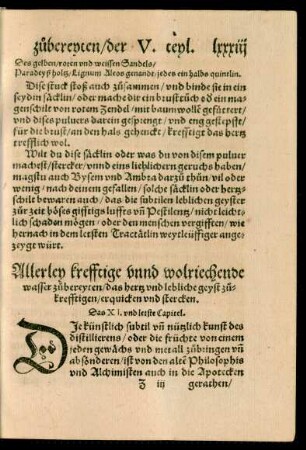 zůbereyten/der V. teyl. lxxxiij
Des gelben/roten vnd weissen Sandels/
Paradeyß holtz/Lignum Aloes genandt/jedes ein halbs quintlin.
Dise stuck stoß auch zůsammen/vnd binde sie in ein
seydin säcklin/oder mache dir ein brusttůch oď ein ma-
genschilt von rotem Zendel/mit baumwollē gefütert/
vnd dises puluers darein gespiengt/vnd eng gestepfft/
für die brust/an den hals gehenckt/krefftiget das hertz
trefflich wol.
Wilt du dise säcklin oder was du von disem puluer
machest/stercker/vnnd eins lieblichern geruchs haben/
magstu auch Bysem vnd Ambra darzů thůn/vil oder
wenig/nach deinem gefallen/solche säcklin oder hertz-
schilt bewaren auch/das die subtilen leblichen geyster
zůr zeit böses gifftigs luffts vn̄ Pestilentz/nicht leicht-
lich schaden mögen/oder den menschen vergifften/wie
hernach in dem letsten Tractätlin weytleüffiger ange-
zeygt würt.
Allerley krefftige vnnd wolriechende
wasser zůbereyten/das hertz vnd lebliche geyst zů-
krefftigen/erquicken vnd stercken.
Das XI. vnd letste Capitel.
DJe künstlich subtil vn̄ nützlich kunst des
distillierens/oder die früchte von einem
jeden gewächs vnd metall zůbringen vn̄
absönderen/ist von den altē Philosophis
vnd Alchimisten auch in die Apotecken
Z iij gerathen/